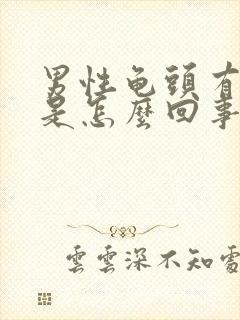 男性龟頭有
是怎麼回事
雲雲深不知處